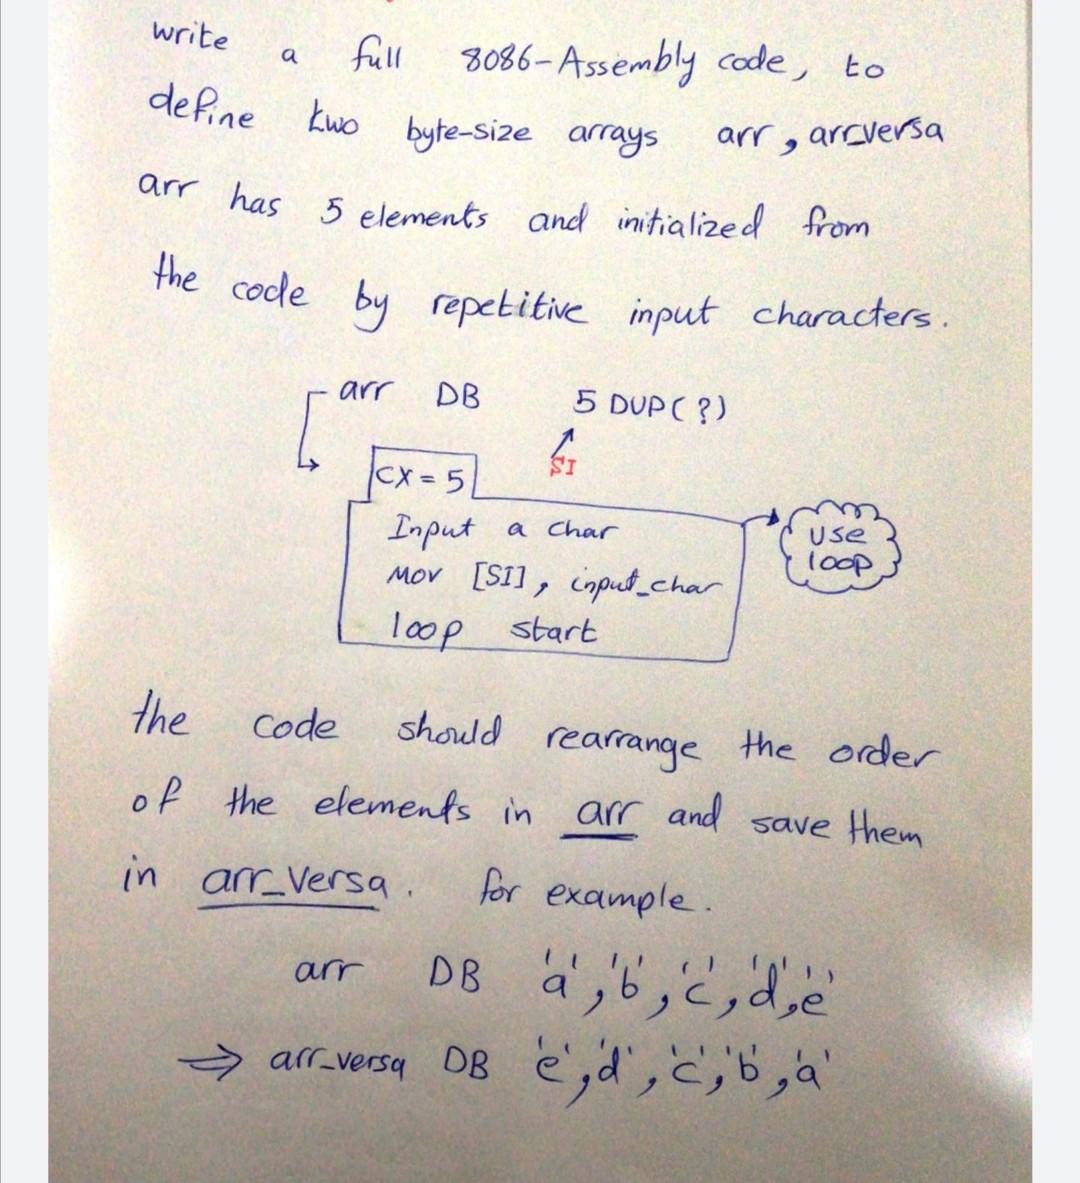 write a full 8086-Assembly code, to
define two byte-size arrays arr, arr_versa
arr has 5 elements and initialized from
the code by repetitive input characters.
arr DB 5 DUP(?)
SI
CX = 5
Input a char
Mov [SI], input_char
loop start
use
loop
the code should rearrange the order
of the elements in arr and save them
in arr_versa. for example.
arr DB 'a','b','c','d,'e'
⇒ arr_versa DB 'e','d','c','b','a'